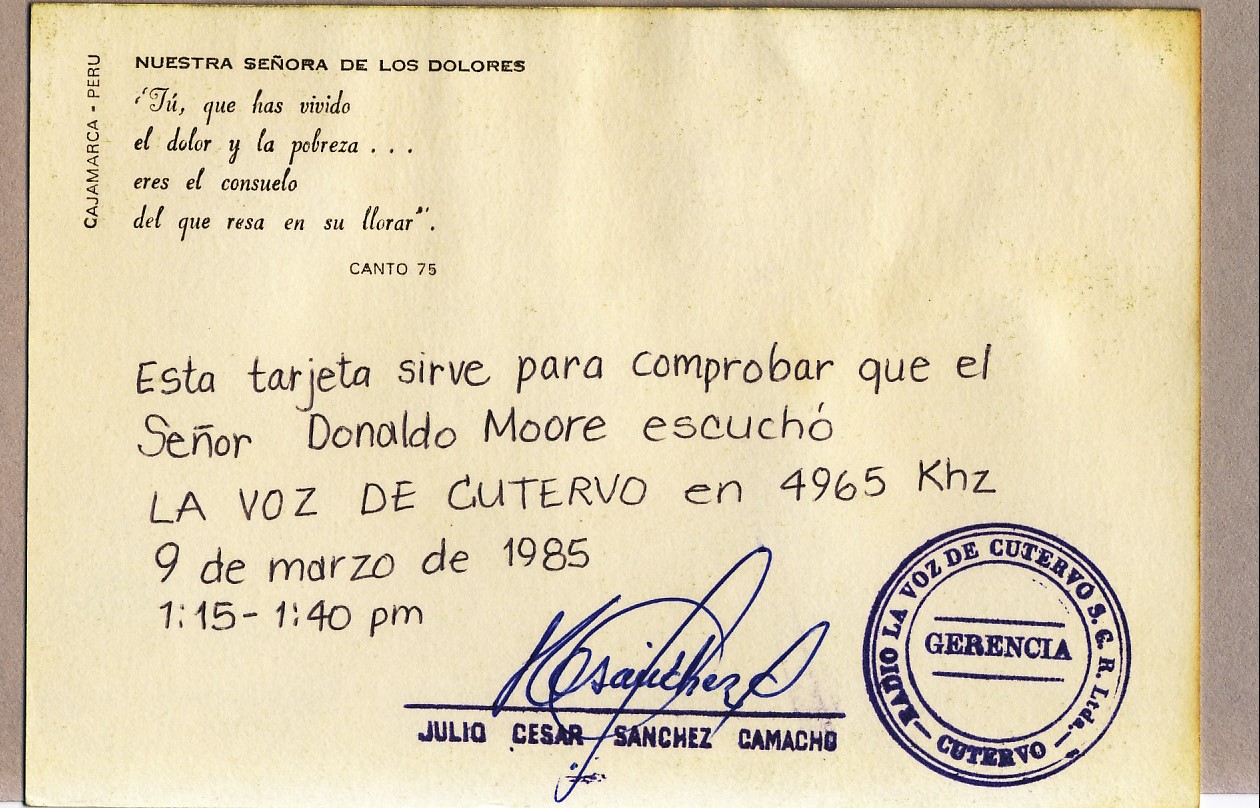 CAJAMARCA - PERU
NUESTRA SEÑORA DE LOS DOLORES
"Tú, que has vivido
el dolor y la pobreza . . .
eres el consuelo
del que resa en su llorar".
CANTO 75
Esta tarjeta sirve para comprobar que el
Señor Donaldo Moore escuchó
LA VOZ DE CUTERVO en 4965 Khz
9 de marzo de 1985
1:15 - 1:40 pm
JULIO CESAR SANCHEZ CAMACHO
RADIO LA VOZ DE CUTERVO S. C. R. Ltda.
GERENCIA
CUTERVO